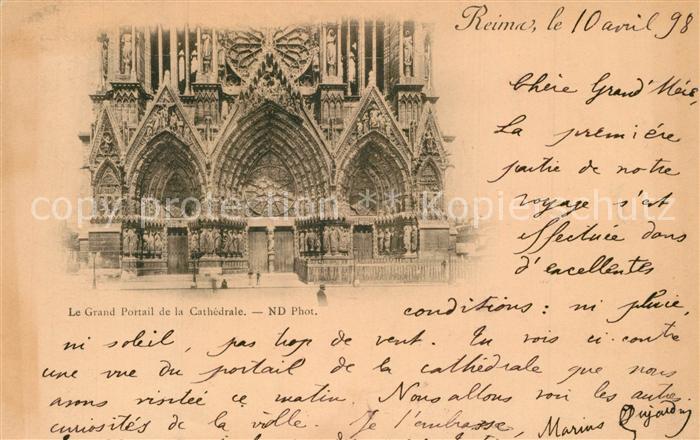 Reims, le 10 avril 98
Chère Grand'Mère
La première
partie de notre
voyage s'est
effectuée dans
d'excellentes
Le Grand Portail de la Cathédrale. — ND Phot.
conditions: ni pluie,
ni soleil, pas trop de vent. Tu vois ci-contre
une vue du portail de la cathédrale que nous
avons visitée ce matin. Nous allons voir les autres
curiosités de la ville. Je t'embrasse, Marius Dujardin
copy protection ** Kopierschutz